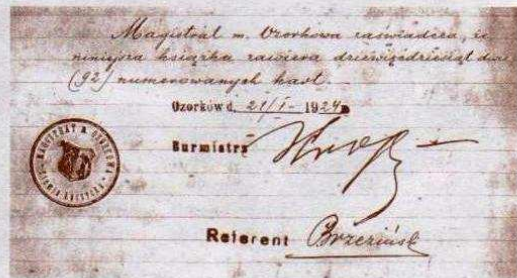 Magistrat m. Ozorkowa zaświadcza, iż
niniejsza książka zawiera dziewięćdziesiąt dwie
(92) numerowanych kart.
Ozorków d. 21/I - 1924
Burmistrz
MAGISTRAT M. OZORKOWA
Referent Brzeziński